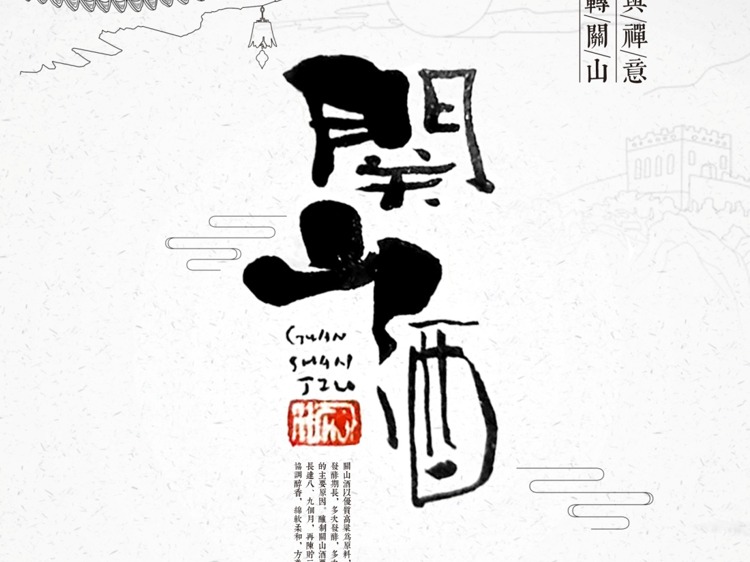 與/禪/意
轉/關/山
関山酒
GUAN
SHAN
JZU
關山酒以優質高粱爲原料，
發酵期長，多次發酵，多
的主要原因。釀制關山酒
長達八、九個月，再陳貯
協調醇香，綿軟柔和，方